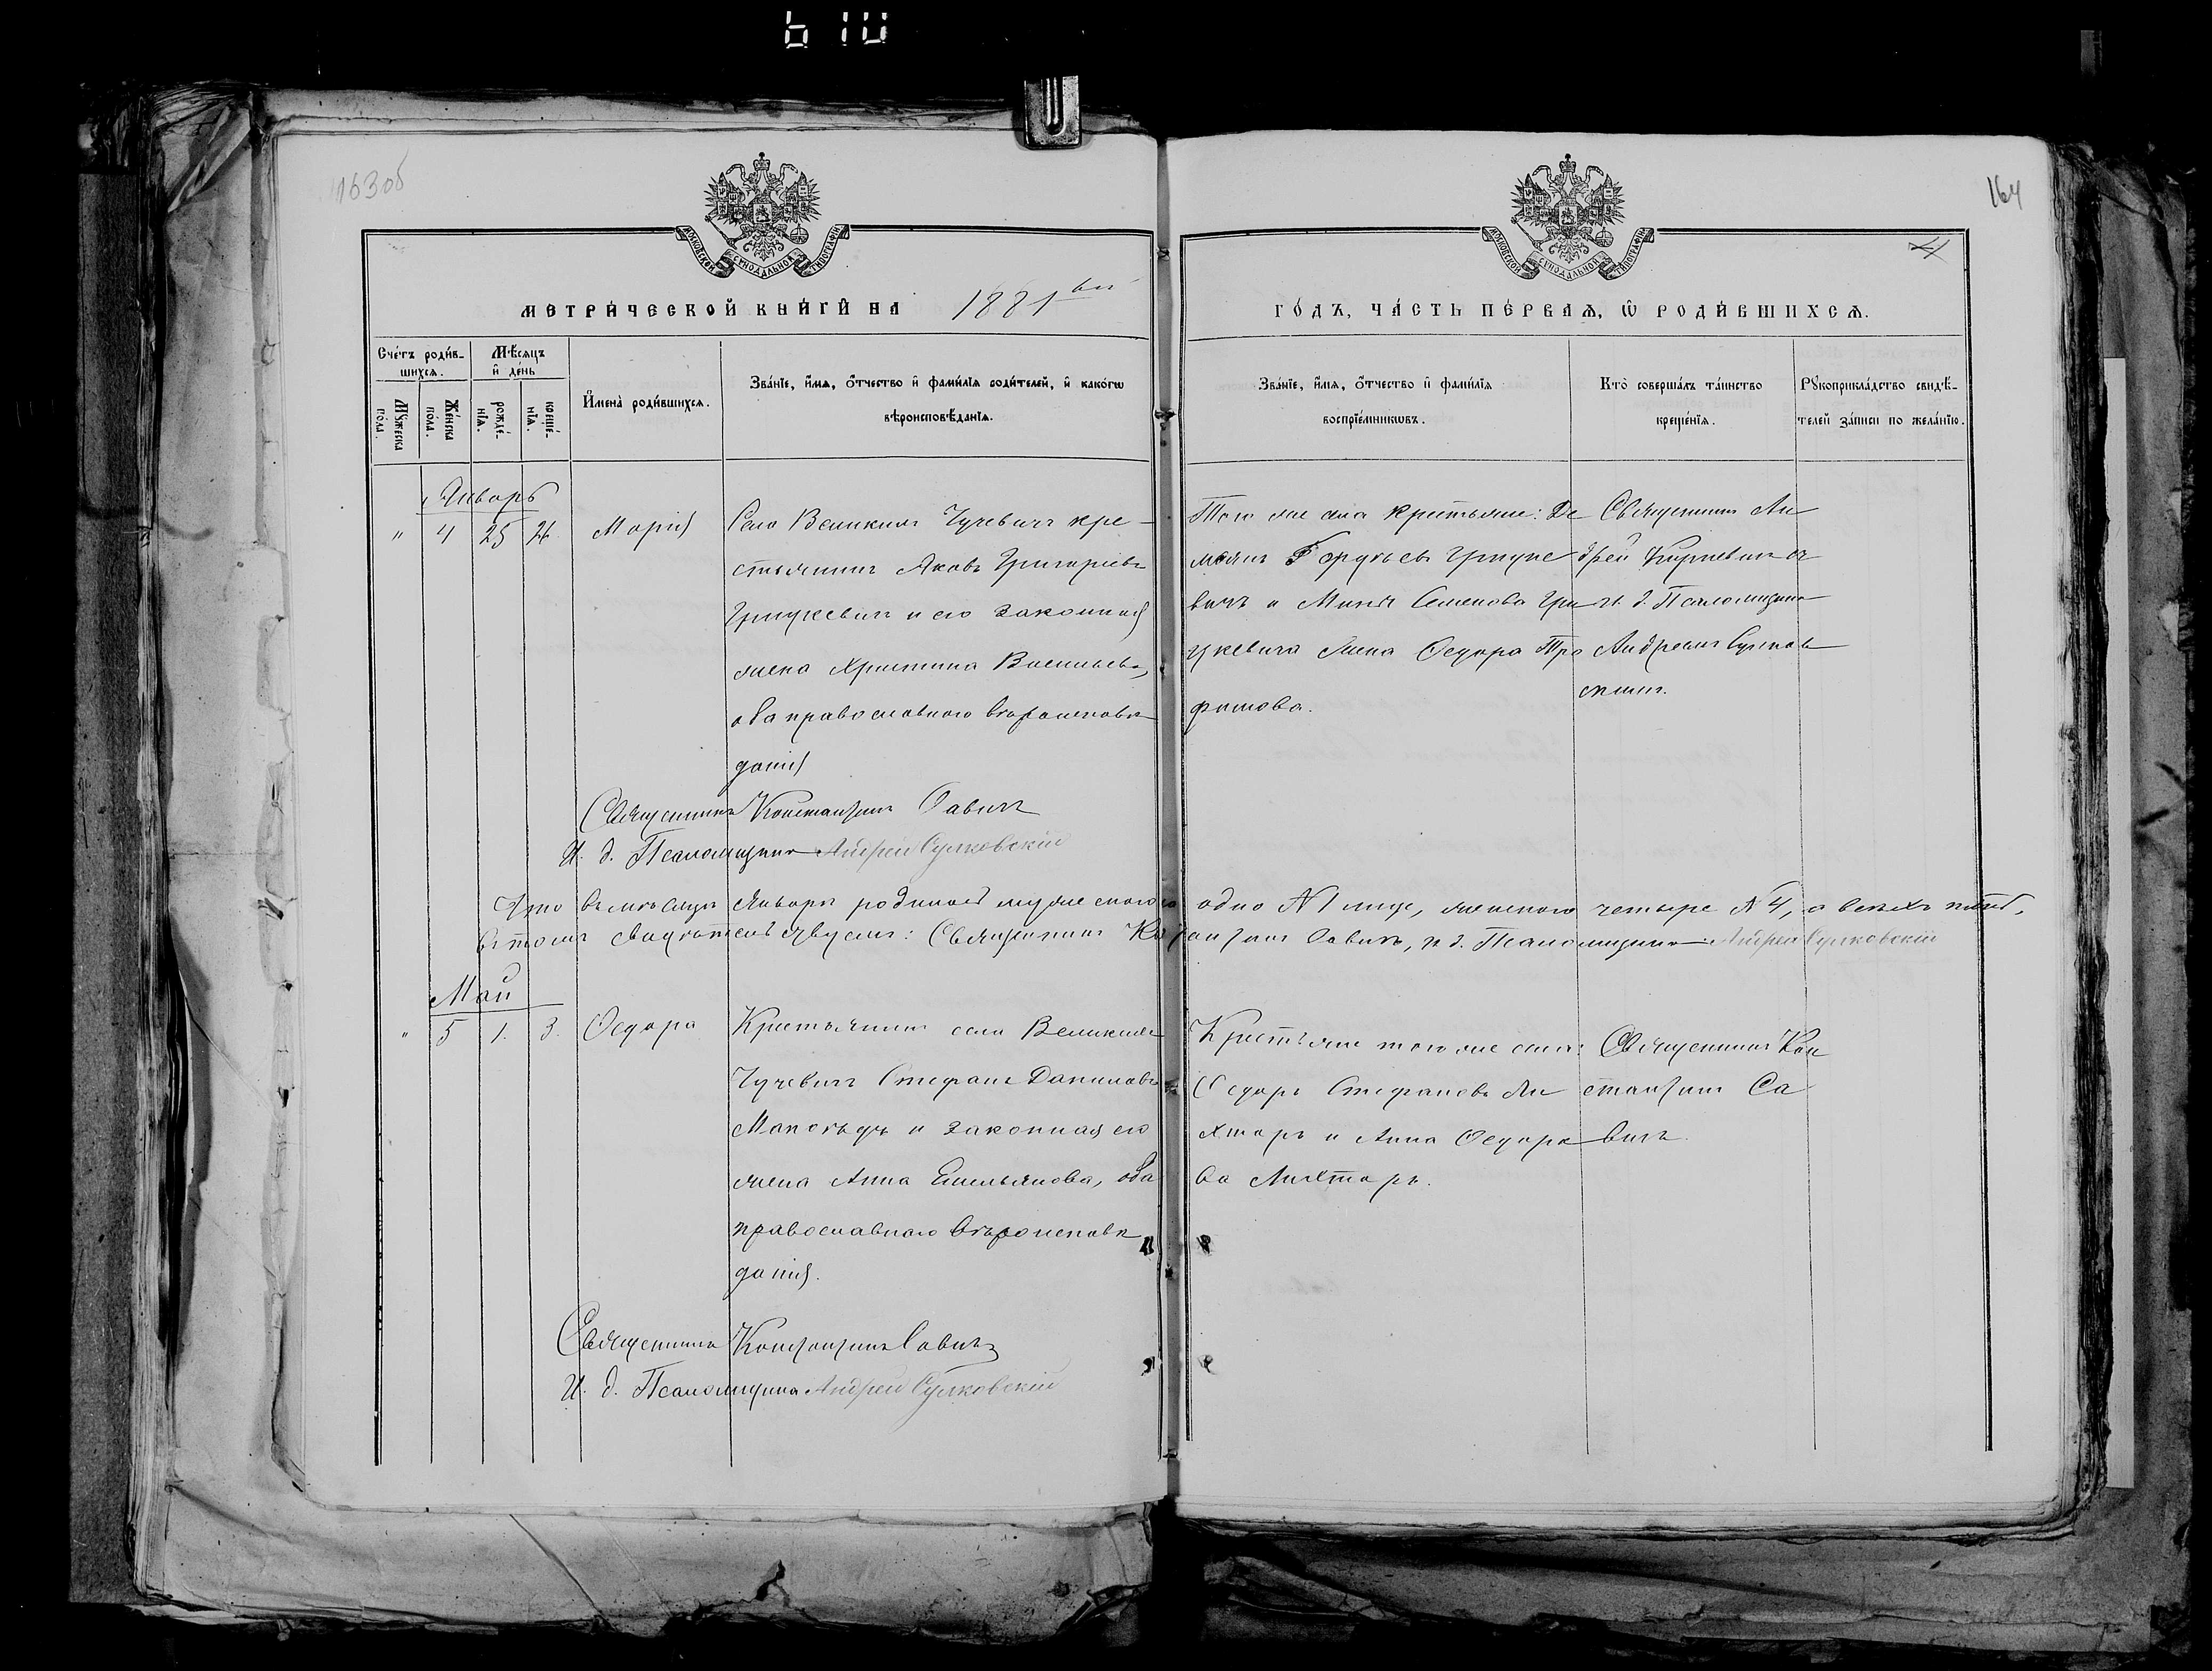 163 об
164
4
МОСКОВСКОЙ СѴНОДАЛЬНОЙ ТИПОГРАФІИ
МОСКОВСКОЙ СѴНОДАЛЬНОЙ ТИПОГРАФІИ
МЕТРИ́ЧЕСКОЙ КНИ́ГИ НА 1881 вый
ГО́ДЪ, ЧА́СТЬ ПЕ́РВАѦ, Ѡ РОДИ́ВШИХСѦ.
Сче́тъ роди́в-
шихсѧ.
Мѣ́сѧцъ
и҆ де́нь
Мꙋ́жеска
по́ла.
Же́нска
по́ла.
рожде́-
нїѧ.
креще́-
нїѧ.
И҆мена̀ роди́вшихсѧ.
Зва́нїе, и҆́мѧ, ѻ҆́тчество и҆ фами́лїѧ роди́телей, и҆ како́гѡ
вѣроисповѣ́данїѧ.
Зва́нїе, и҆́мѧ, ѻ҆́тчество и҆ фами́лїѧ
воспрїе́мникѡвъ.
Кто̀ соверша́лъ та́инство
креще́нїѧ.
Рꙋкоприкла́дство свидѣ́-
телей за́писи по жела́нїю.
Январь
" 4 25 26 Марія
Села Великихъ Чучевичъ кре-
стьянинъ Яковъ Григоріевъ
Грицкевичъ и его законная
жена Христина Васильева,
оба православнаго вѣроисповѣ
данія
Того же села крестьяне: Да
Грицке
вичъ и Семенова Гри
цкевича жена Ѳедора Тро
фимова.
Священникъ Ан
дрей съ
и. д. Псаломщика
Андреемъ Сулков
скимъ.
Священникъ Константинъ Савичъ
И. д. Псаломщика Андрей Сулковскій
Что въ мѣсяцѣ Январѣ родилось мужескаго одно № 1 лице, женскаго четыре № 4, а всехъ пять,
въ томъ свидѣтельствуемъ: Священникъ Константинъ Савичъ, и. д. Псаломщика Андрей Сулковскій
Май
" 5 1. 3. Ѳедора
Крестьянинъ села Великихъ
Чучевичъ Стефанъ Даниловъ
и законная его
жена Анна Емельянова, оба
православнаго вѣроисповѣ
данія.
Крестьяне того же села:
Ѳедоръ Стефановъ Ли
хтаръ и Анна Ѳедоро
ва Лихтаръ.
Священникъ Кон
стантинъ Са
вичъ.
Священникъ Константинъ Савичъ
И. д. Псаломщика Андрей Сулковскій